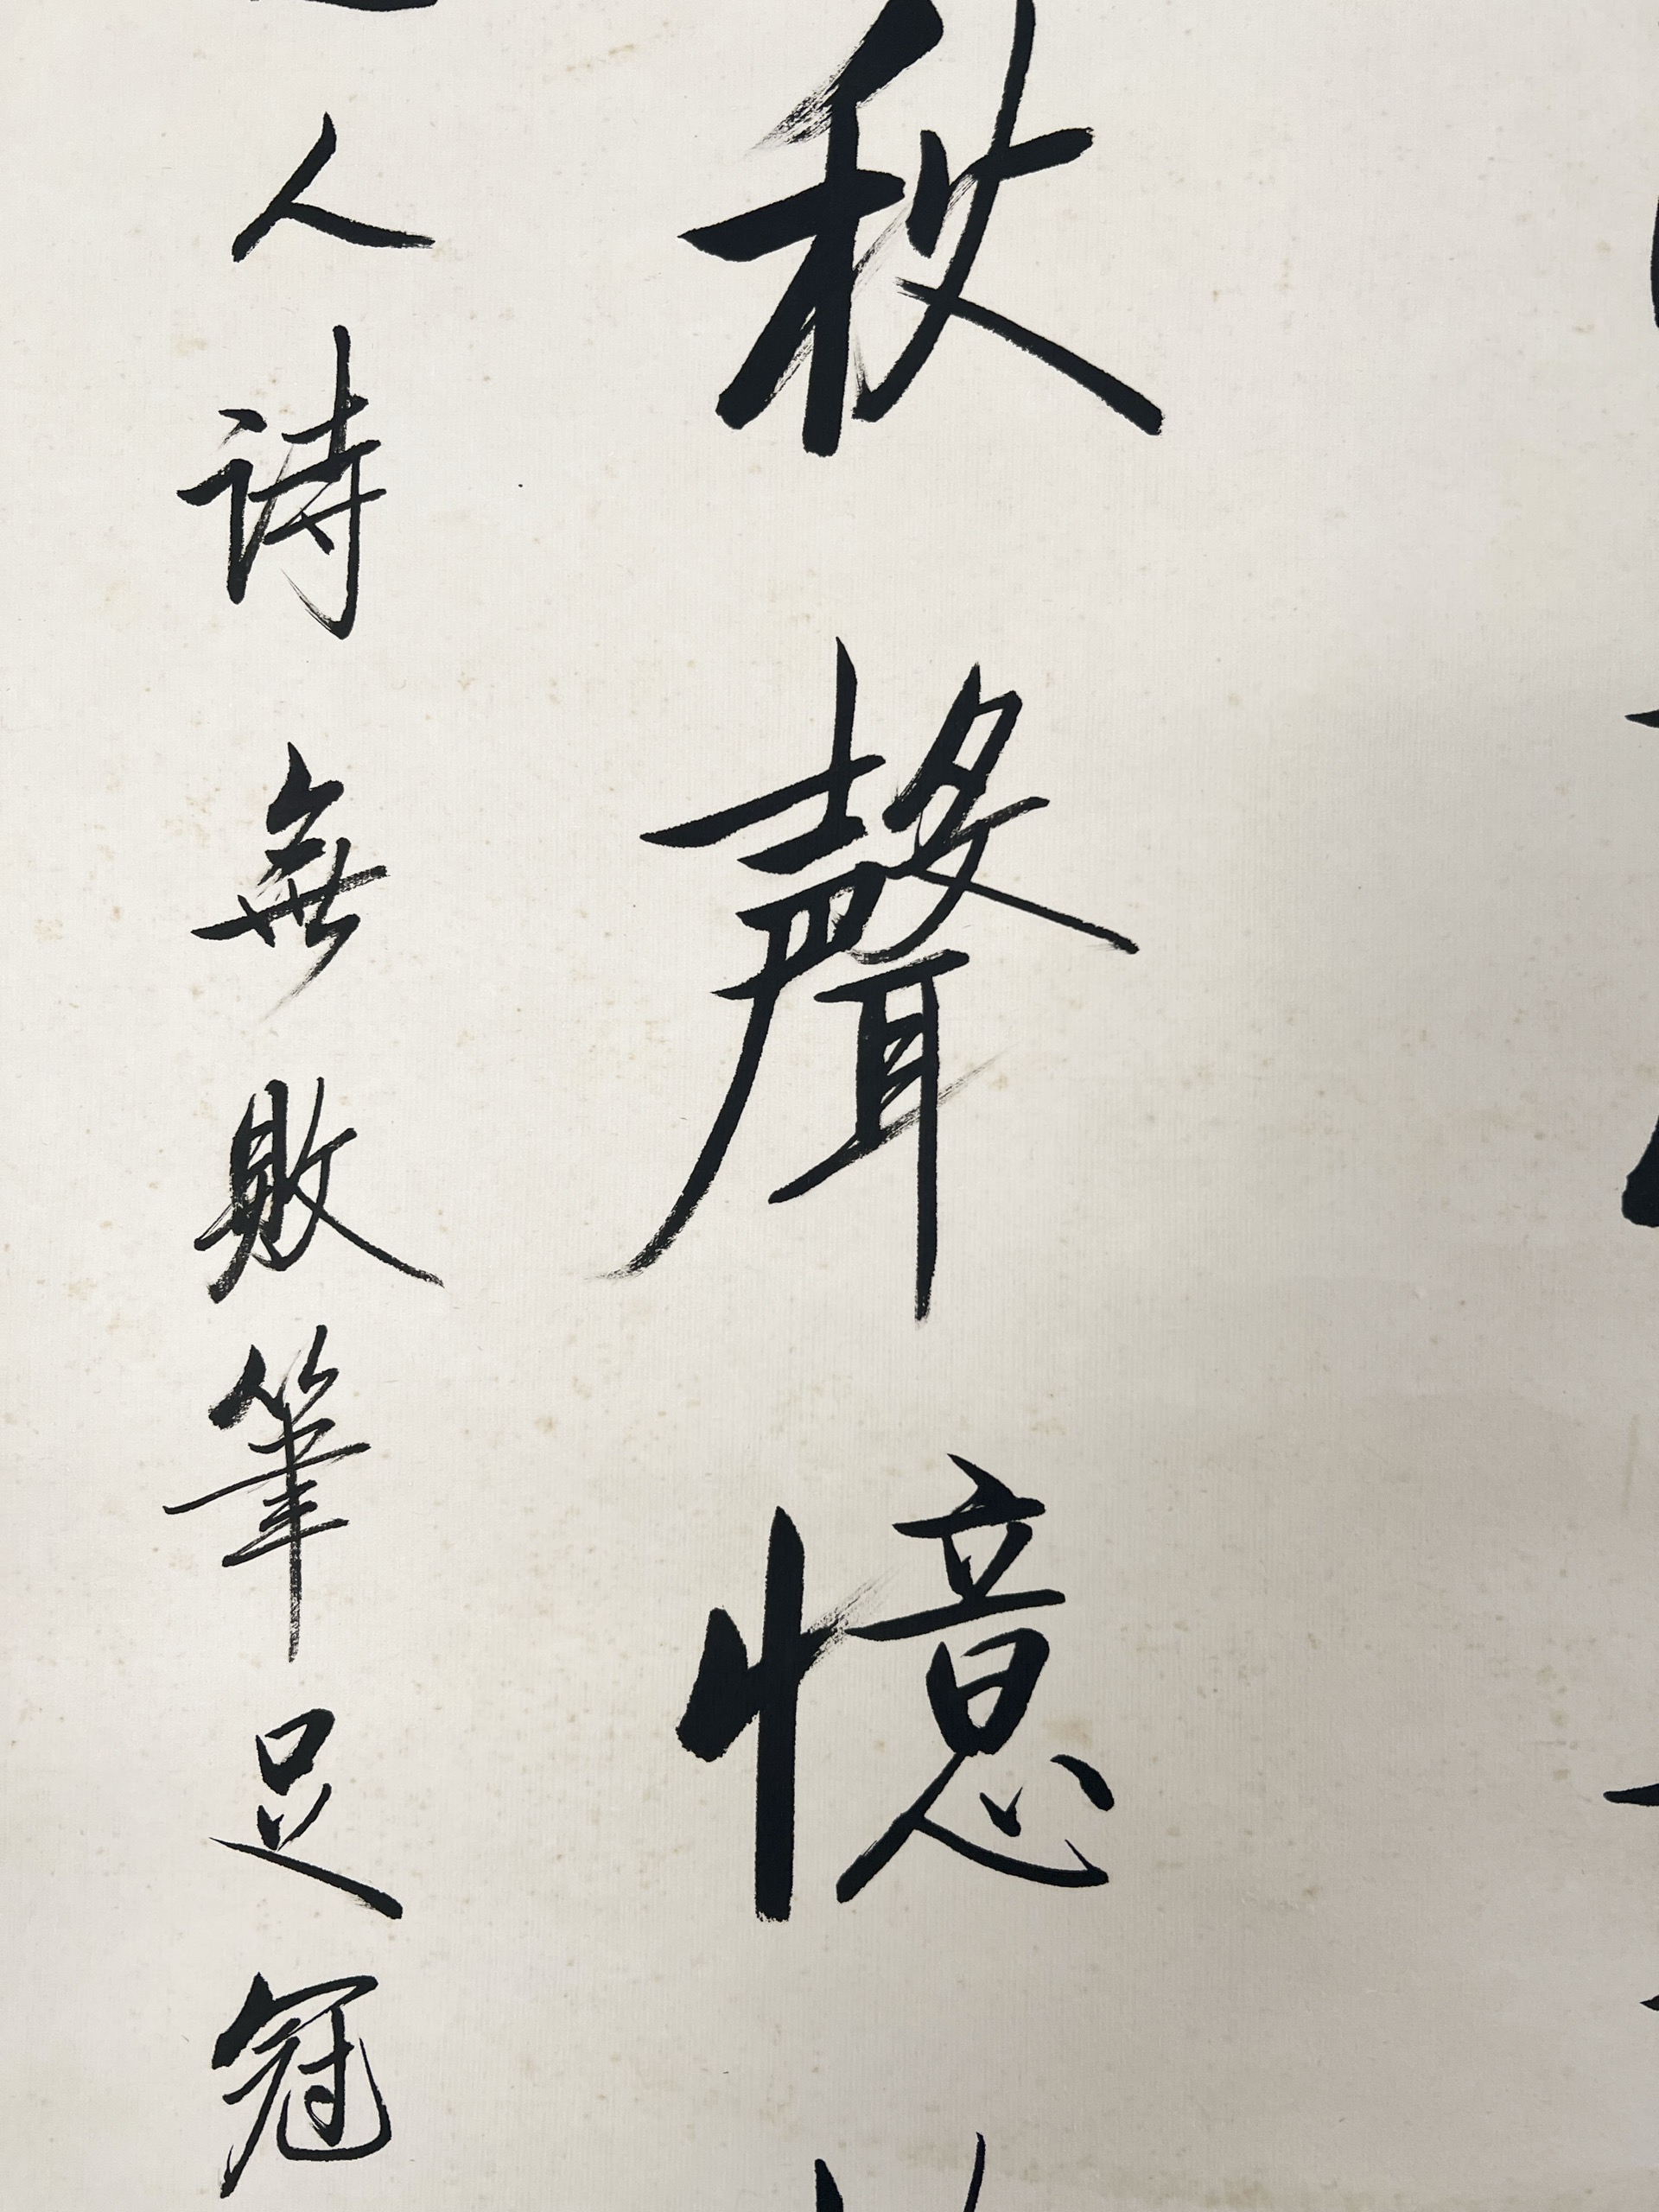 秋聲憶
人詩無敗筆足冠